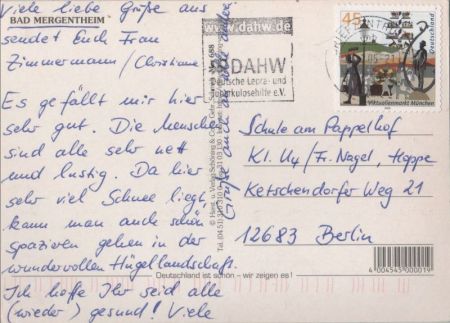 Viele liebe Grüße aus
BAD MERGENTHEIM
sendet Euch Frau
Zimmermann / Christiane
Es gefällt mir hier
sehr gut. Die Menschen
sind alle sehr nett
und lustig. Da hier
sehr viel Schnee liegt,
kann man auch schön
spazieren gehen in der
wundervollen Hügellandschaft.
Ich hoffe Ihr seid alle
(wieder) gesund! Viele
Grüße auch an
www.dahw.de
DAHW
Deutsche Lepra- und
Tuberkulosehilfe e.V.
45
Deutschland
Viktualienmarkt München
Schule am Pappelhof
Kl. U4 / Fr. Nagel, Hoppe
Ketschendorfer Weg 21
12683 Berlin
4004545000019
Deutschland ist schön – wir zeigen es!